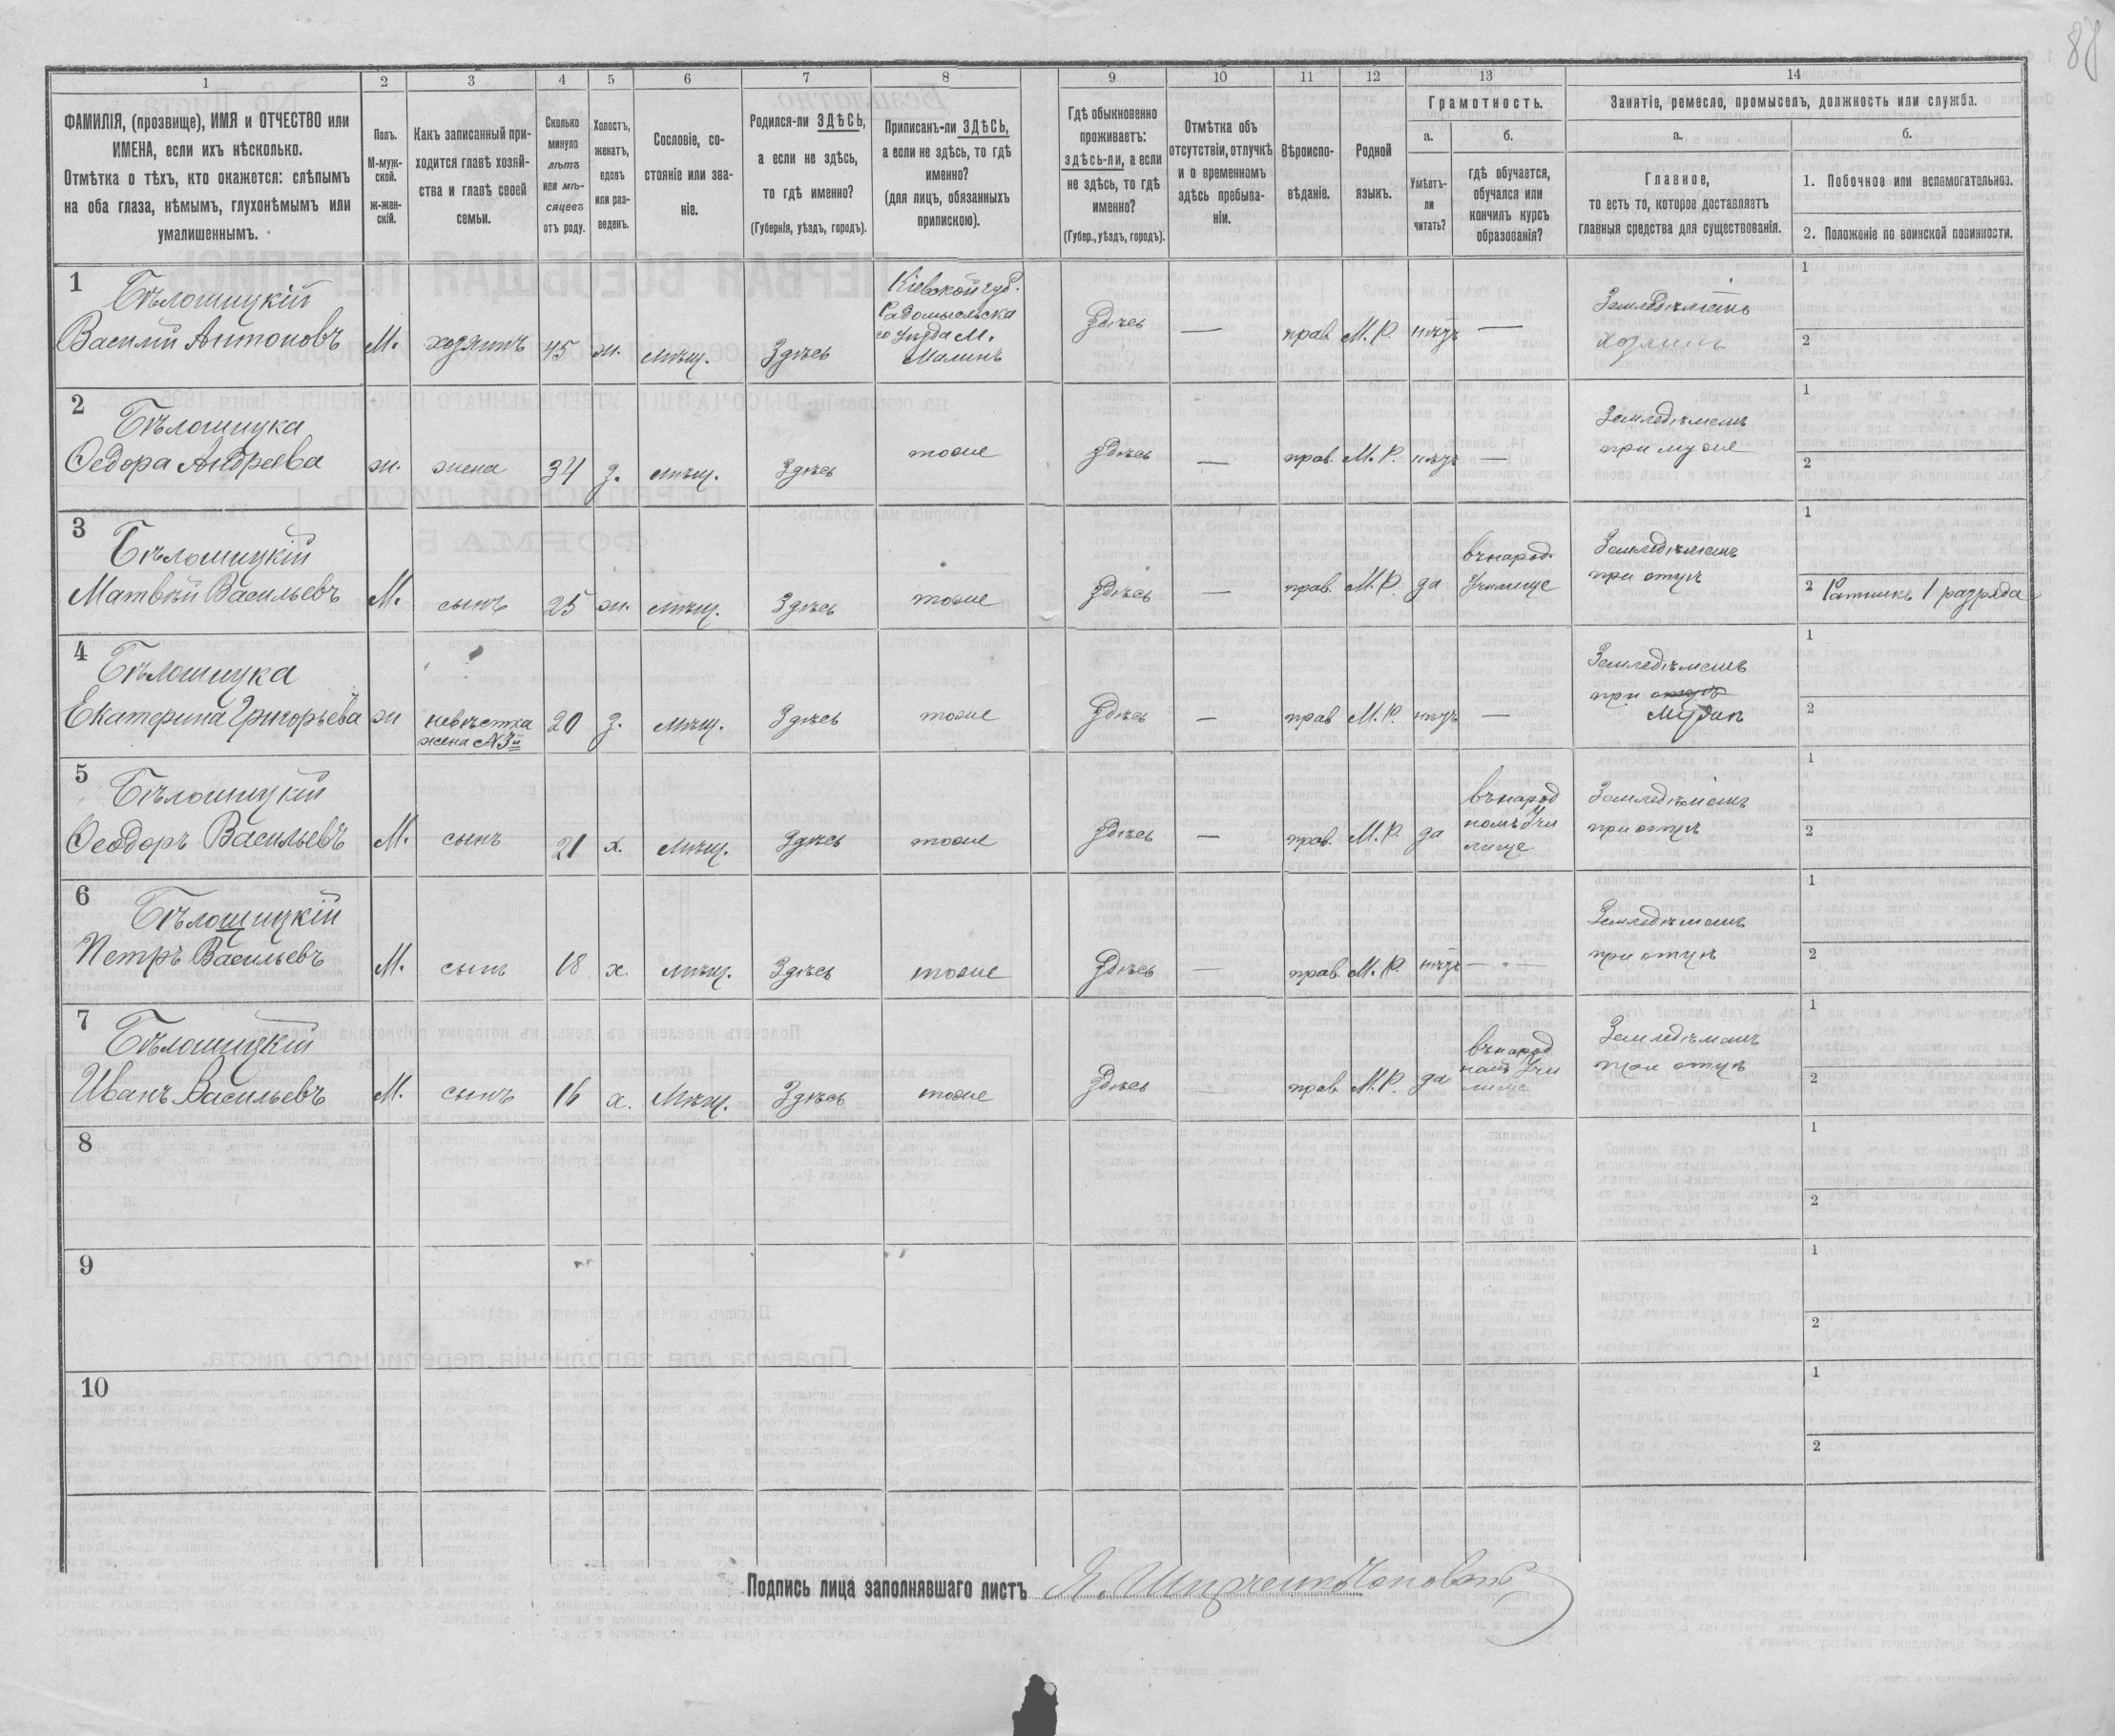 88
1 2 3 4 5 6 7 8 9 10 11 12 13 14
ФАМИЛІЯ, (прозвище), ИМЯ и ОТЧЕСТВО или
ИМЕНА, если ихъ нѣсколько.
Отмѣтка о тѣхъ, кто окажется: слѣпымъ
на оба глаза, нѣмымъ, глухонѣмымъ или
умалишеннымъ.
Полъ.
М-муж-
ской.
ж-жен-
скій.
Какъ записанный при-
ходится главѣ хозяй-
ства и главѣ своей
семьи.
Сколько
минуло
лѣтъ
или мѣ-
сяцевъ
отъ роду.
Холостъ,
женатъ,
вдовъ
или раз-
веденъ.
Сословіе, со-
стояніе или зва-
ніе.
Родился-ли ЗДѢСЬ,
а если не здѣсь,
то гдѣ именно?
(Губернія, уѣздъ, городъ).
Приписанъ-ли ЗДѢСЬ,
а если не здѣсь, то гдѣ
именно?
(для лицъ, обязанныхъ
припискою).
Гдѣ обыкновенно
проживаетъ:
здѣсь-ли, а если
не здѣсь, то гдѣ
именно?
(Губер., уѣздъ, городъ).
Отмѣтка объ
отсутствіи, отлучкѣ
и о временномъ
здѣсь пребыва-
ніи.
Вѣроиспо-
вѣданіе.
Родной
языкъ.
Грамотность.
а.
Умѣетъ-
ли
читать?
б.
гдѣ обучается,
обучался или
кончилъ курсъ
образованія?
Занятіе, ремесло, промыселъ, должность или служба.
а.
Главное,
то есть то, которое доставляетъ
главныя средства для существованія.
б.
1. Побочное или вспомогательное.
2. Положеніе по воинской повинности.
1
Бѣлошицкій
Василій Антоновъ
М.
хозяинъ
45
ж.
мѣщ.
Здѣсь
Кіевской губ.
Радомысльска
го Уѣзда М.
Малинъ
Здѣсь
—
прав.
М.Р.
нѣтъ
—
Земледѣлецъ
хозяинъ
1
2
2
Бѣлошицка
Ѳедора Андреева
ж.
жена
34
з.
мѣщ.
Здѣсь
тоже
Здѣсь
—
прав.
М.Р.
нѣтъ
—
Земледѣлецъ
при мужѣ
1
2
3
Бѣлошицкій
Матвѣй Васильевъ
М.
сынъ
25
ж.
мѣщ.
Здѣсь
тоже
Здѣсь
—
прав.
М.Р.
да
въ народ.
Училище
Земледѣлецъ
при отцѣ
1
2 Ратникъ 1 разряда
4
Бѣлошицка
Екатерина Григорьева
ж
невѣстка
жена №3й
20
з.
мѣщ.
Здѣсь
тоже
Здѣсь
—
прав
М.Р.
нѣтъ
—
Земледѣлецъ
при отцѣ
мужѣ
1
2
5
Бѣлошицкій
Ѳеодоръ Васильевъ
М.
сынъ
21
х.
мѣщ.
Здѣсь
тоже
Здѣсь
—
прав.
М.Р.
да
въ народ
номъ Учи
лище
Земледѣлецъ
при отцѣ
1
2
6
Бѣлошицкій
Петръ Васильевъ
М.
сынъ
18
х.
мѣщ.
Здѣсь
тоже
Здѣсь
—
прав.
М.Р.
нѣтъ
—
Земледѣлецъ
при отцѣ
1
2
7
Бѣлошицкій
Иванъ Васильевъ
М.
сынъ
16
х.
Мѣщ.
Здѣсь
тоже
Здѣсь
—
прав
М.Р.
да
въ народ
номъ Учи
лище
Земледѣлецъ
при отцѣ
1
2
8
1
2
9
1
2
10
1
2
Подпись лица заполнявшаго листъ